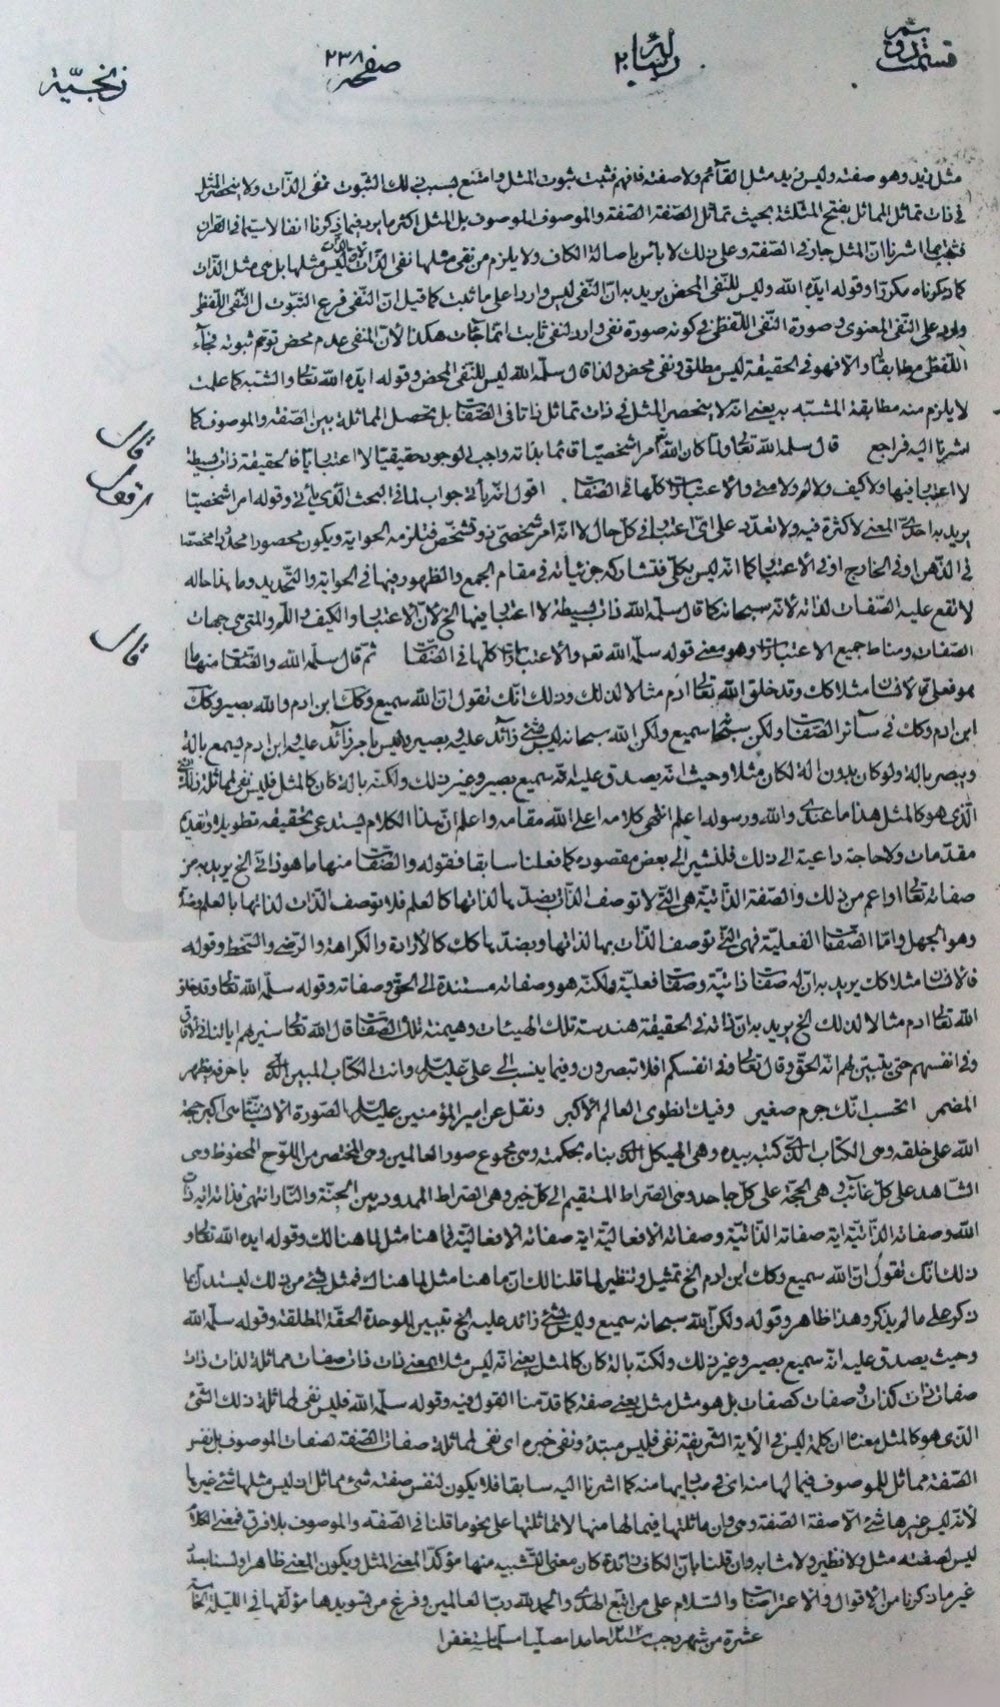 قسمت دوم رسالة ٢٠ صفحه ٢٣٨ زنجيّة
مثل زيد وهو صفته وليس زيد مثل القائم ولا صفته فافهم فثبت ثبوت المثل وامتنع بسبب ذلك الثبوت نفى الذات ولا ينحصر المثل
فى ذات تماثل المماثل بفتح المثلثة بحيث تماثل الصّفة الصّفة والموصوف الموصوف بل المثل اكثر ما يرد فيما ذكرنا انفا لا سيّما فى القران
اشرنا ان المثل جار فى الصّفة وعلى ذلك لا باس باصالة الكاف ولا يلزم من نفى مثلها نفى الذات لانّ الذات ليس مثلها بل هى مثل الذات
كما ذكرناه مكررا وقوله ايّده الله وليس للنّفى المحض يريد به انّ النّفى ليس واردا على ما ثبت كما قيل انّ النّفى فرع الثبوت النّفى اللّفظى
وارد على النّفى المعنوى فى صورة النّفى اللّفظى فى كونه صورة نفى وارد لنفى ثابت انّما جآءت هكذا لانّ المنفى عدم محض توهّم ثبوته فجآء
اللّفظى مطابقا والا فهو فى الحقيقة ليس مطلق ونفى محض ولذا قال سلّمه الله ليس للنّفى المحض وقوله ايّده الله تعالى والشبه كما علمت
لا يلزم منه مطابقة المشبّه به يعنى انّه لا ينحصر المثل فى ذات تماثل ذاتا فى الصّفات بل تحصل المماثلة بين الصّفة والموصوف كما
اشرنا اليه فراجع قال سلّمه الله تعالى ولمّا كان الله امرا شخصيّا قائما بذاته واجب الوجود حقيقيّا لا اعتباريّا فالحقيقة ذات بسيطة
لا اعتبار فيها ولا كيف ولا لم ولا متى والاعتبارات كلّها فى الصّفات . اقول انّه يأتى جواب لما فى البحث الّذى يأتى وقوله امرا شخصيّا
يريد به احدىّ المعنى لا كثرة فيه ولا تعدّد على اىّ اعتبار فى كلّ حال لا انّه امر شخصىّ ذو تشخّص فتلزمه الحواية ويكون محصورا محدودا مختصّا
فى الذّهن او فى الخارج او فى الاعتبار كما انّه ليس بكلّى فتشاركه جزئياته فى مقام الجمع والظهور فيها فى الحواية والتّحديد وما هذا حاله
لا تقع عليه الصّفات لذاته لانّه سبحانه كما قال سلّمه الله ذات بسيطة لا اعتبار فيها الخ لانّ الاعتبار والكيف واللّم والمتى هى جهات
الصّفات ومناط جميع الاعتبارات وهو معنى قوله سلّمه الله نعم والاعتبارات كلّها فى الصّفات ثم قال سلّمه الله والصّفات منها ما
هو فعلى فالانسان مثلا كك وقد خلق الله تعالى ادم مثالا لذلك وذلك انّك تقول انّ الله سميع وكك ابن ادم والله بصير وكك
ابن ادم وكك فى سائر الصّفات ولكن الله سبحانه ليس بشئ زائد عليه وبصير وليس باجر زآئد عليه وابن ادم يسمع بالة
ويبصر بالة ولو كان بدون الة لكان مثلا وحيث انّه يصدق عليه انّه سميع بصير وغير ذلك ولكنّه بالة كان كالمثل فليس نفى لمماثلة ذلك الشئ
الّذى هو كالمثل هذا ما عندى والله ورسوله اعلم انتهى كلامه اعلى الله مقامه واعلم انّ هذا الكلام يستدعى تحقيقه تطويلا وتقديم
مقدّمات ولا حاجة داعية الى ذلك فلنشير الى بعض مقصوده كما فعلنا سابقا فقوله والصّفات منها ما هو ذاتى الخ يريد به من
صفاته تعالى او اعم من ذلك والصّفة الذّاتيّة هى الّتى لا توصف الذّات بضدّها لذاتها كالعلم فلا توصف الذّات لذاتها بالعلم وضدّه
وهو الجهل وامّا الصّفات الفعليّة فهى الّتى توصف الذّات بها لذاتها وبضدّها كك كالارادة والكراهة والرّضى والسّخط وقوله
فالانسان مثلا كك يريد به انّ له صفات ذاتيّة وصفات فعليّة ولكنّه هو وصفاته مستندة الى الحقّ وصفاته وقوله سلّمه الله تعالى وقد خلق
الله تعالى ادم مثالا لذلك الخ يريد به انّ ذاته فى الحقيقة هندسة تلك الهيئات وهيمنة تلك الصّفات قال الله تعالى سنريهم اياتنا فى الافاق
وفى انفسهم حتى يتبيّن لهم انّه الحقّ وقال تعالى وفى انفسكم افلا تبصرون وفيما ينسب الى على عليه السّلام وانت الكتاب المبين الّذى باحرفه يظهر
المضمر اتحسب انّك جرم صغير وفيك انطوى العالم الاكبر ونقل عن امير المؤمنين عليه السّلام الصّورة الانسانيّة هى اكبر حجة
الله على خلقه وهى الكتاب الّذى كتبه بيده وهى الهيكل الّذى بناه بحكمته وهى مجموع صور العالمين وهى المختصر من اللّوح المحفوظ وهى
الشّاهد على كلّ غائب وهى الحجّة على كلّ جاحد وهى الصراط المستقيم الى كلّ خير وهى الصّراط الممدود بين الجنّة والنّار انتهى فذاته اية ذات
الله وصفاته الذّاتيّة اية صفاته الذّاتيّة وصفاته الافعاليّة اية صفاته الافعاليّة فما هنا مثل لما هنالك وقوله ايده الله تعالى و
ذلك انّك تقول انّ الله سميع وكك ابن ادم الخ تمثيل وتنظير لما قلنا لك انّ ما هنا مثل لما هناك فمثل بشئ من ذلك ليستدلّ بما
ذكر على ما لم يذكر وهذا ظاهر وقوله ولكن الله سبحانه سميع وليس بشئ زائد عليه الخ تبيين للوحدة الحقّة المطلقة وقوله سلّمه الله
وحيث يصدق عليه انّه سميع بصير وغير ذلك ولكنّه بالة كان كالمثل يعنى انّه ليس مثلا بمعنى ذات ذات صفات مماثلة لذات ذات
صفات ذات كذات وصفات كصفات بل هو مثل مثل يعنى صفة كما قدّمنا القول فيه وقوله سلّمه الله فليس نفى لمماثلة ذلك الشّئ
الّذى هو كالمثل معناه ان كلمة ليس فى الاية الشّريفة نفى فليس مبتدء ونفى خبره اى نفى لمماثلة صفات الصّفة لصفات الموصوف بل نفس
الصّفة مماثل للموصوف فيما لها منه اى فى ما بها منه كما اشرنا اليه سابقا فلا يكون لنفس صفته شئ مماثل اذ ليس مثلها شئ غيرها
لانّه ليس غيرها شئ الّا صفة الصّفة وهى وان ماثلتها فيما لها منها لا تماثلتها على نحو ما قلنا فى الصّفة والموصوف بلا فرق فمعنى الكلام
ليس لصفته مثل ولا نظير ولا مشابه وان قلنا بانّ الكاف زائدة كان معنى التّشبيه منها مؤكّدا لمعنى المثل ويكون المعنى ظاهرا ولسنا بصدد
غير ما ذكرنا من الاقوال والاعتراضات والسّلام على من اتّبع الهدى والحمد لله ربّ العالمين وفرغ من تسويدها مؤلّفها فى اللّيلة الخامسة
عشرة من شهر رجب سنة ١٢١٢ حامدا مصلّيا مسلّما مستغفرا
قال
اقول
قال